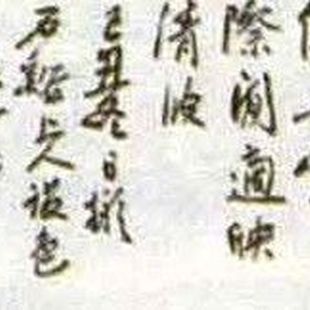 際閒適映
清波
己丑冬日擬
石谿上人設色